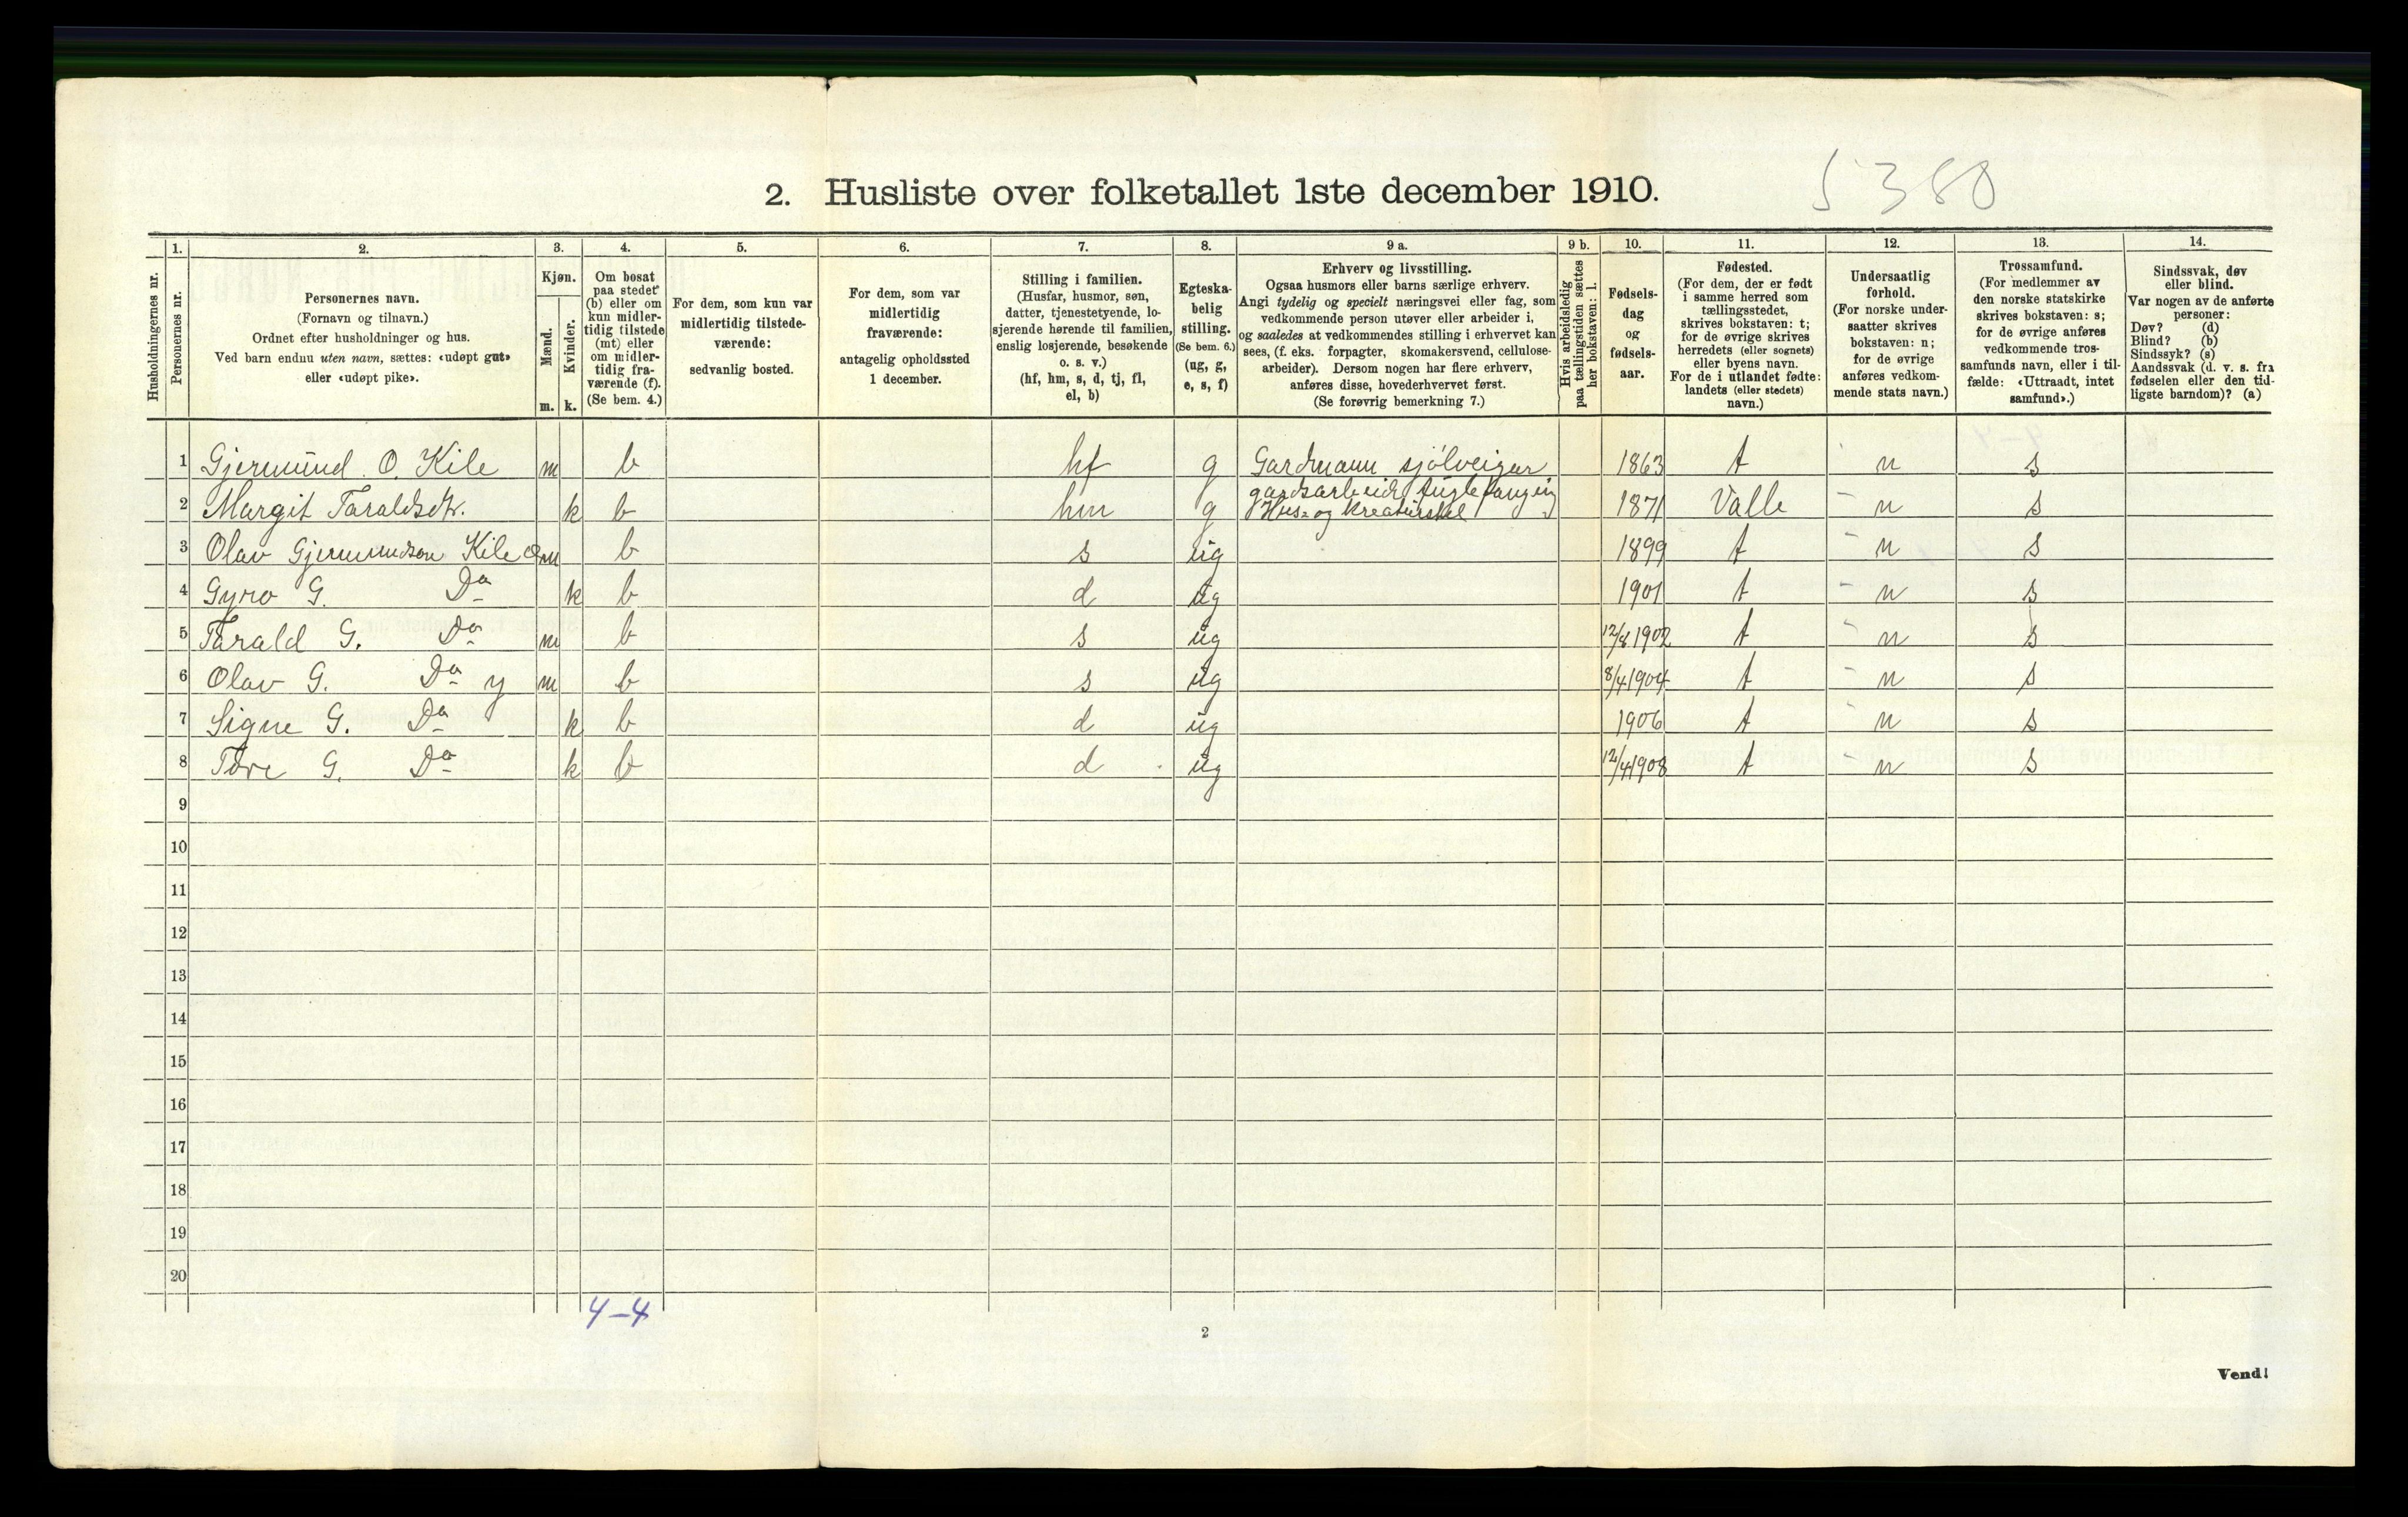 5380
2. Husliste over folketallet 1ste december 1910.
Husholdningernes nr.
1.
Personernes nr.
2.
Personernes navn.
(Fornavn og tilnavn.)
Ordnet efter husholdninger og hus.
Ved barn endnu uten navn, sættes: «udøpt gut»
eller «udøpt pike».
3.
Kjøn.
Mænd.
Kvinder.
m. k.
4.
Om bosat
paa stedet
(b) eller om
kun midler-
tidig tilstede
(mt) eller
om midler-
tidig fra-
værende (f).
(Se bem. 4.)
5.
For dem, som kun var
midlertidig tilstede-
værende:
sedvanlig bosted.
6.
For dem, som var
midlertidig
fraværende:
antagelig opholdssted
1 december.
7.
Stilling i familien.
(Husfar, husmor, søn,
datter, tjenestetyende, lo-
sjerende hørende til familien,
enslig losjerende, besøkende
o. s. v.)
(hf, hm, s, d, tj, fl,
el, b)
8.
Egteska-
belig
stilling.
(Se bem. 6.)
(ug, g,
e, s, f)
9 a.
Erhverv og livsstilling.
Ogsaa husmors eller barns særlige erhverv.
Angi tydelig og specielt næringsvei eller fag, som
vedkommende person utøver eller arbeider i,
og saaledes at vedkommendes stilling i erhvervet kan
sees, (f. eks. forpagter, skomakersvend, cellulose-
arbeider). Dersom nogen har flere erhverv,
anføres disse, hovederhvervet først.
(Se forøvrig bemerkning 7.)
9 b.
Hvis arbeidsledig
paa tællingstiden sættes
her bokstaven: l.
10.
Fødsels-
dag
og
fødsels-
aar.
11.
Fødested.
(For dem, der er født
i samme herred som
tællingsstedet,
skrives bokstaven: t;
for de øvrige skrives
herredets (eller sognets)
eller byens navn.
For de i utlandet fødte:
landets (eller stedets)
navn.)
12.
Undersaatlig
forhold.
(For norske under-
saatter skrives
bokstaven: n;
for de øvrige
anføres vedkom-
mende stats navn.)
13.
Trossamfund.
(For medlemmer av
den norske statskirke
skrives bokstaven: s;
for de øvrige anføres
vedkommende tros-
samfunds navn, eller i til-
fælde: «Uttraadt, intet
samfund».)
14.
Sindssvak, døv
eller blind.
Var nogen av de anførte
personer:
Døv? (d)
Blind? (b)
Sindssyk? (s)
Aandssvak (d. v. s. fra
fødselen eller den tid-
ligste barndom)? (a)
1 Gjermund O. Kile m b hf g Gardmann sjølveigar 1863 t n s
gardsarbeide fuglefanging
2 Margit Taraldsdtr. k b hm g Hus- og kreaturstel 1871 Valle n s
3 Olav Gjermundson Kile m b s ug 1899 t n s
4 Gyro G. Do k b d ug 1901 t n s
5 Tarald G. Do m b s ug 12/8 1902 t n s
6 Olav G. Do y m b s ug 8/4 1904 t n s
7 Signe G. Do k b d ug 1906 t n s
8 Tore G. Do k b d ug 12/4 1908 t n s
9
10
11
12
13
14
15
16
17
18
19
20
4-4
2
Vend!